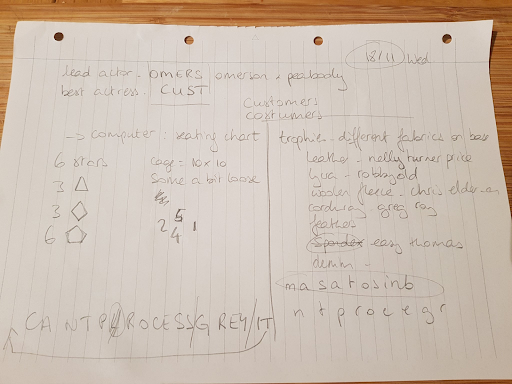 18/11 Wed
lead actor - OMERS omerson + peabody
best actress. CUST
customers
costumers
-> computer : seating chart
6 stars
3 △
3 ◇
6 ⬠
cage = 10x10
Some a bit loose
5
2 4 1
trophies - different fabrics on base
leather - nelly turner price
lycra - robbgold
woolen fleece - chris elder-en
corduroy greg ray
feathers
Spandex easy thomas
denim -
masatosinb
ntprocegr
CANTP ROCESS/GREY/IT